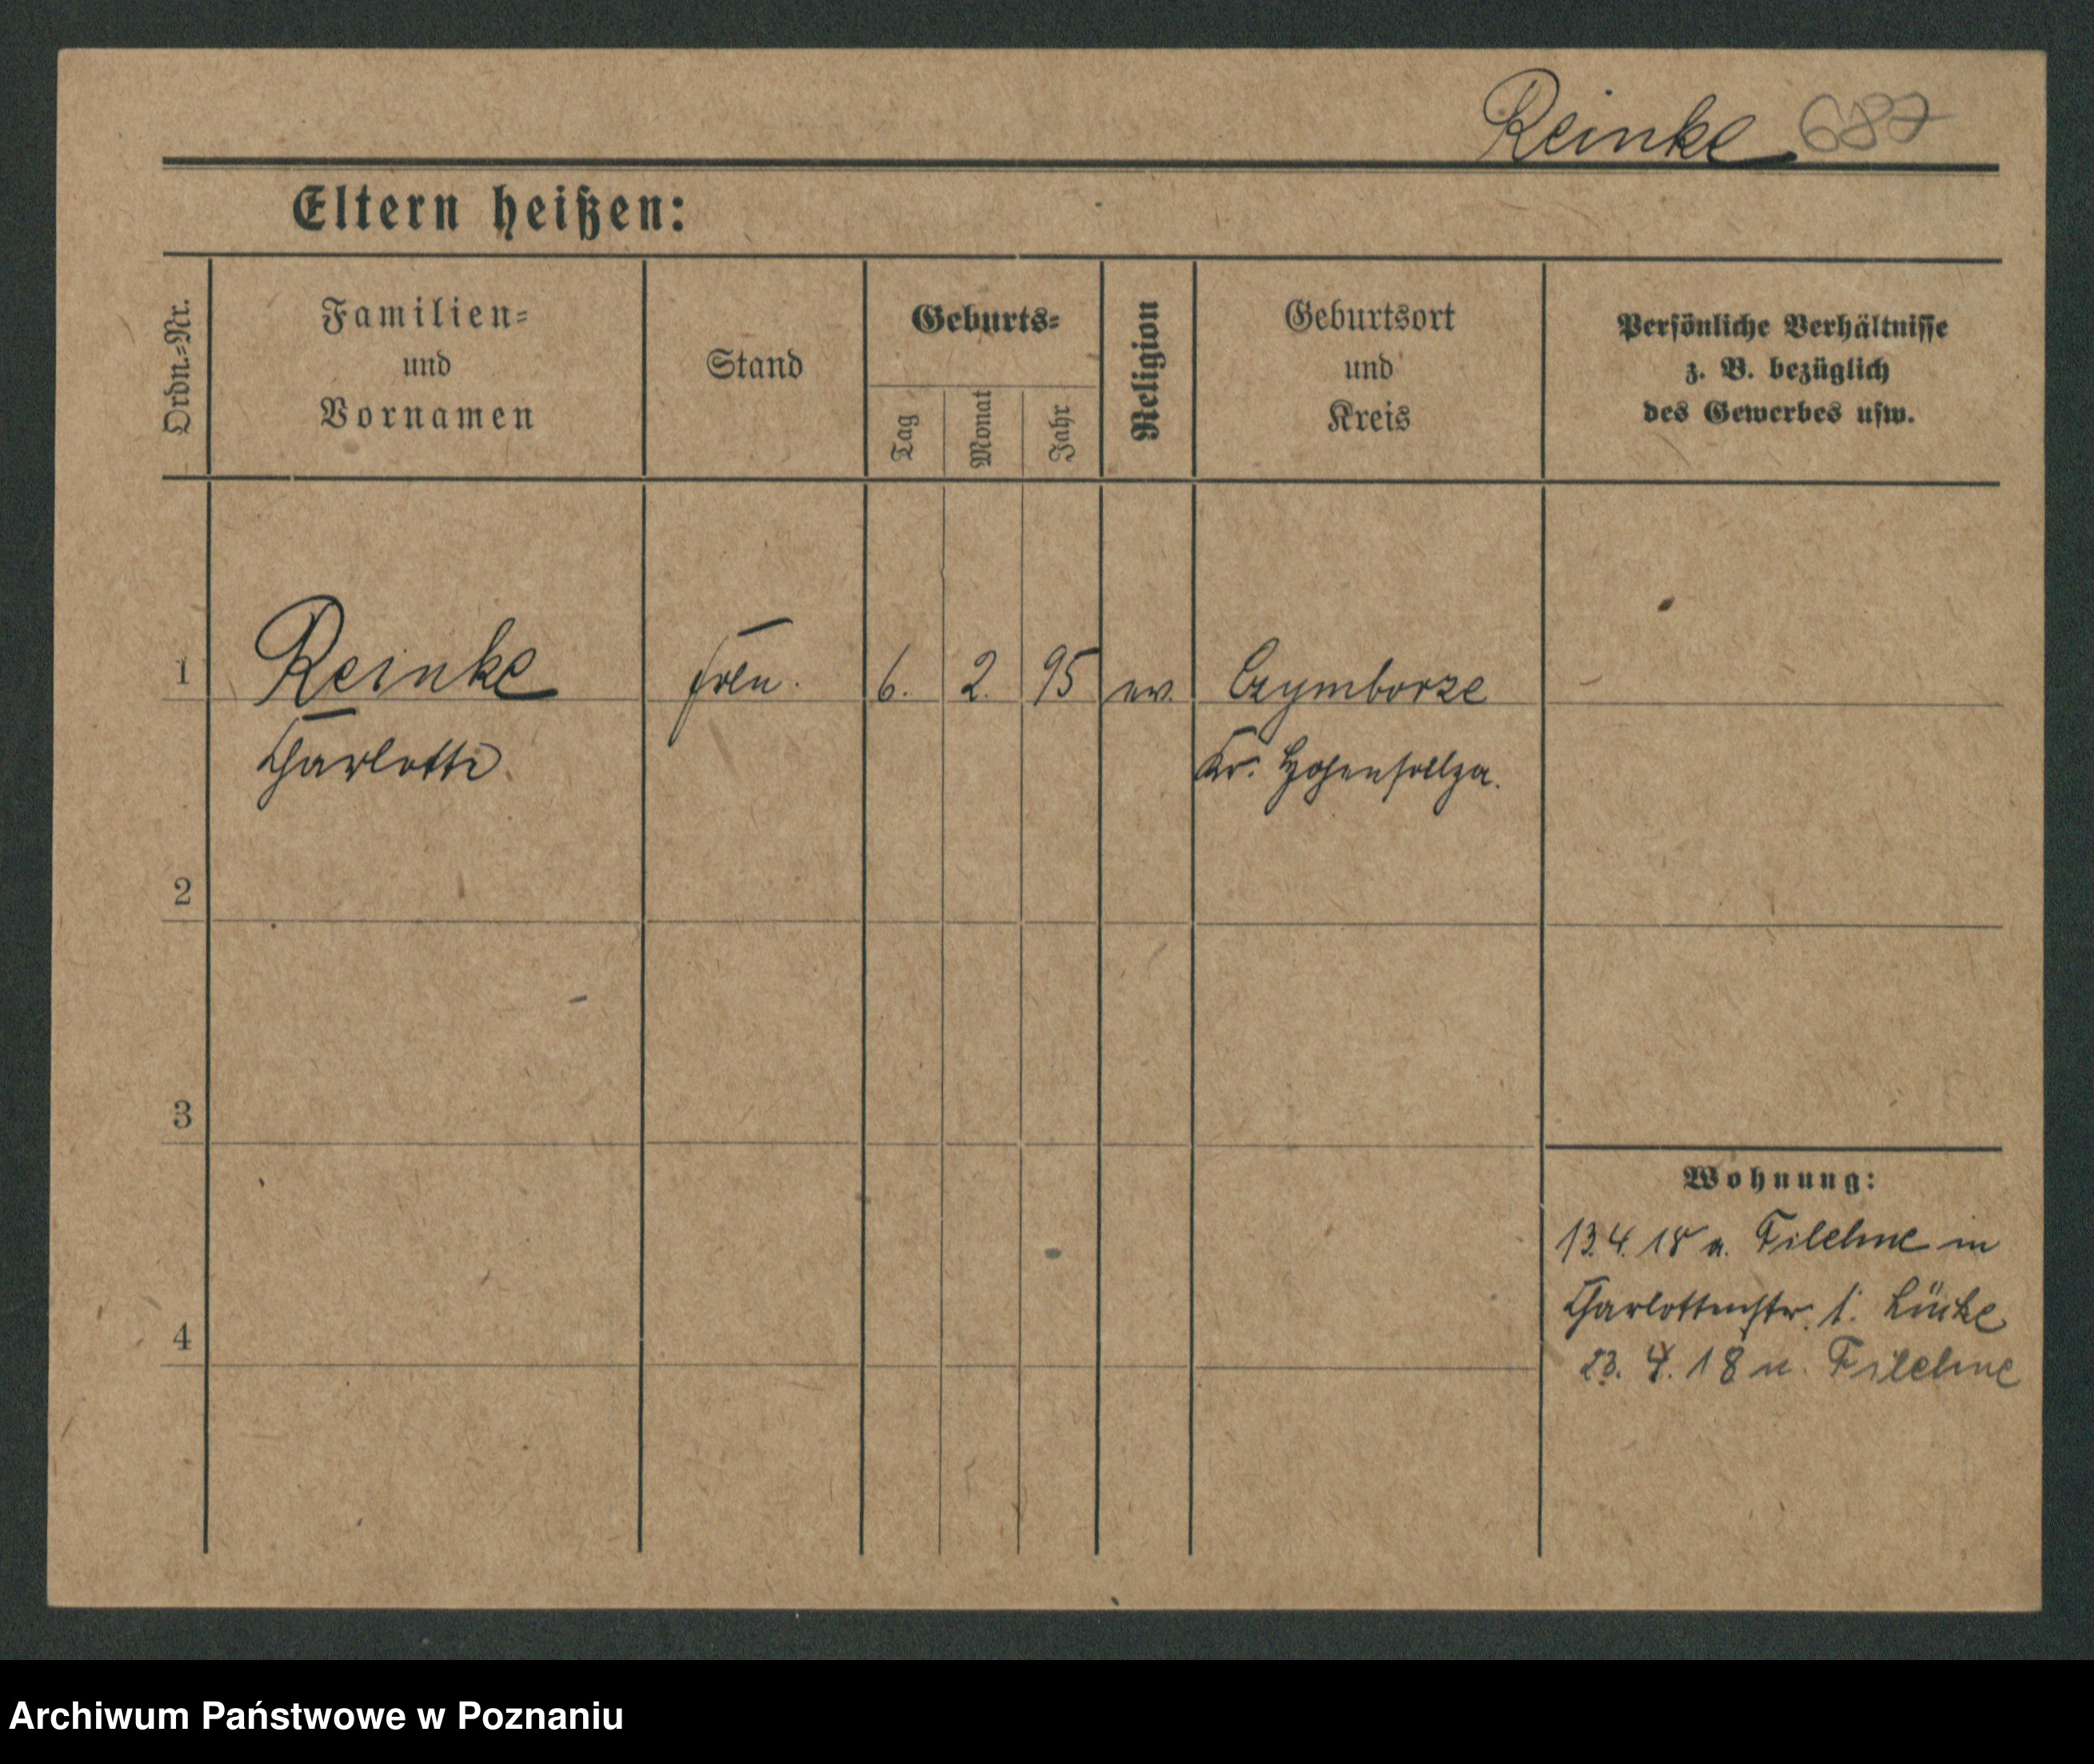 Reinke 687
Eltern heißen:
Ordn.=Nr.
Familien=
und
Vornamen
Stand
Geburts=
Tag
Monat
Jahr
Religion
Geburtsort
und
Kreis
Persönliche Verhältnisse
z. B. bezüglich
des Gewerbes usw.
1 Reinke 6. 2. 95 ev. Czymborze
Charlotte Kr. Hohensalza.
2
3
4
Wohnung:
13.4.18 a. Filehne in
Charlottenstr. 1. Lücke
23. 4. 18 n. Filehne
Archiwum Państwowe w Poznaniu